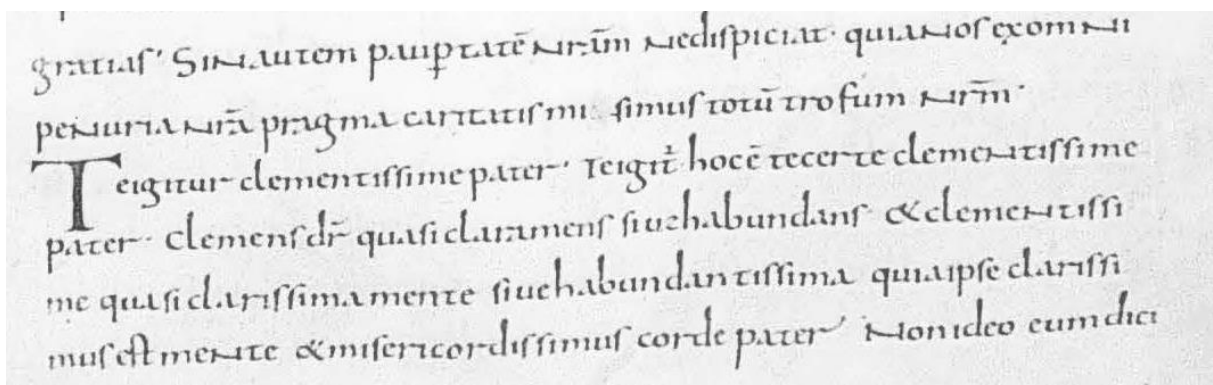 gratias. Sin autem paup̲tatē nr̄am ne dispiciat. quia nos ex omni
penuria nrā pragma caritatis mi simus totū trosum nr̄m.
Te igitur clementissime pater. Te igit̄. hoc ē te certe clementissime
pater. Clemens dr̄ quasi clara mens siue habundans. & clementissi
me quasi clarissima mente siue habundantissima quia ipse clarissi
mus est mente & misericordissimus corde pater. Non ideo eum dici